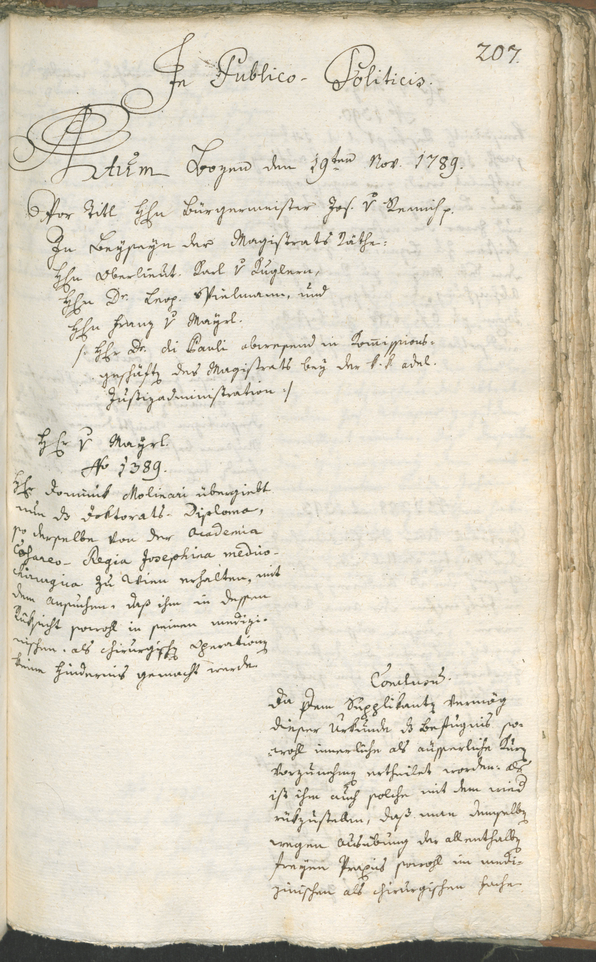 207.
In Publico-Politicis.
Actum Bozen den 19ten Nov. 1789.
Vor Titl Hhn Bürgermeister Jos. v Remich p.
In Beyseyn der Magistrats Räthe:
Hhn Oberlieut. Karl v Kuglern,
Hhn Dr. Leop. Spielmann, und
Hhn Franz v Mayrl.
/: Hhr Dr. di Pauli abwesend in Kommissions-
geschäfte des Magistrats bey der k. k. adel.
Justizadministration :/
Hhr v Mayrl.
No 1389.
Hhr Dominik Molinari übergiebt
nun das Doktorats-Diploma,
so derselbe von der Academia
Cesareo-Regia Josephina medico-
chirurgica zu Wien erhalten, mit
dem Ansuchen, daß ihm in dessen
Rüksicht sowohl in seinen medizi-
nischen, als chirurgischen Operationen
keine Hindernis gemacht werde.
Conclusum.
Da dem Supplikanten vermög
dieser Urkunde das Befugnis so-
wohl innerliche als äusserliche Kuren
vorzunehmen ertheilet worden: als
ist ihm auch solche mit dem wied
rükzustellen, daß man demselben
wegen Ausübung der allenthalben
freyen Praxis sowohl im medi-
zinischen als chirurgischen Fache